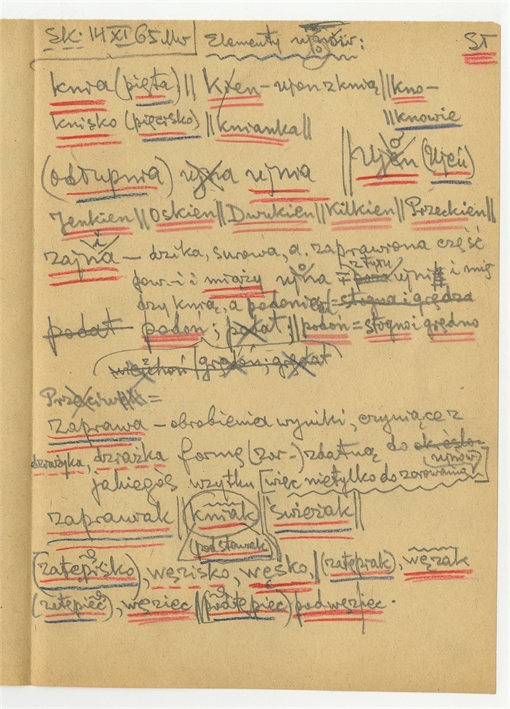 Sk. 14 XI 65 Elementy ujnów: ST
knia (pięta) || kien - ujen z knią || kno-
knisko (piętisko) || knianka || || knowie
(odłupnia) ujna ujnia || Ujen (Ujeń)
Jenkien || Oskien || Dwukien || Kilkien || Przeckien ||
zajna - dzika, surowa, a. zaprawiona część
pow-i i miąży ujna z tyłu ujni i mię
dzy knią, a podonią = stogna i grędza
podat podoń; podat; || podoń = stogno i grędno
grędoń; grędat
zaprawa - obrobienia wyniki, czyniące z
dziażyka, dziażka formę (zar-) zdatną do
jakiegoś użytku [więc nietylko do zarowania]
zaprawak | kniak | świerak ||
(podstawek)
(zatępisko), węzisko, węsko, || (zatęprak), węzak
(zetępiec), węziec || (podtępiec) podwęziec.